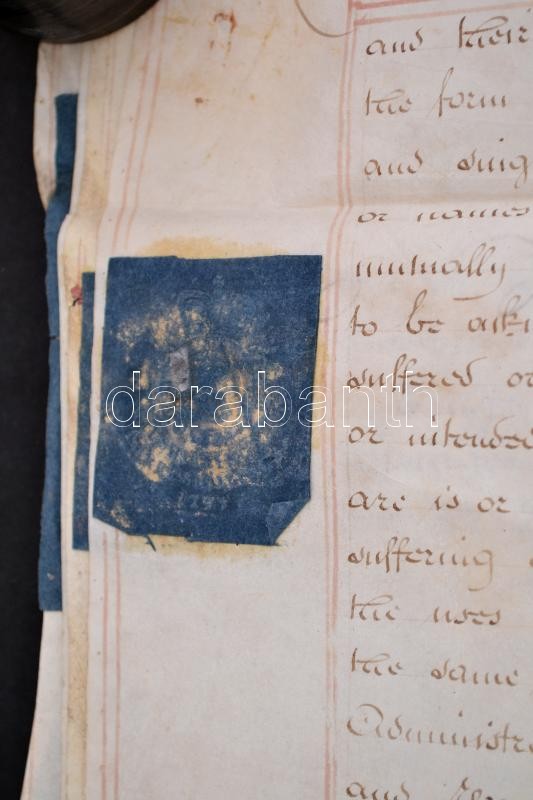 and their
the form
and sing
or names
mutually
to be
suffered or
darabanth
or intende
are is or
suffering
the uses
the same
Administr
and